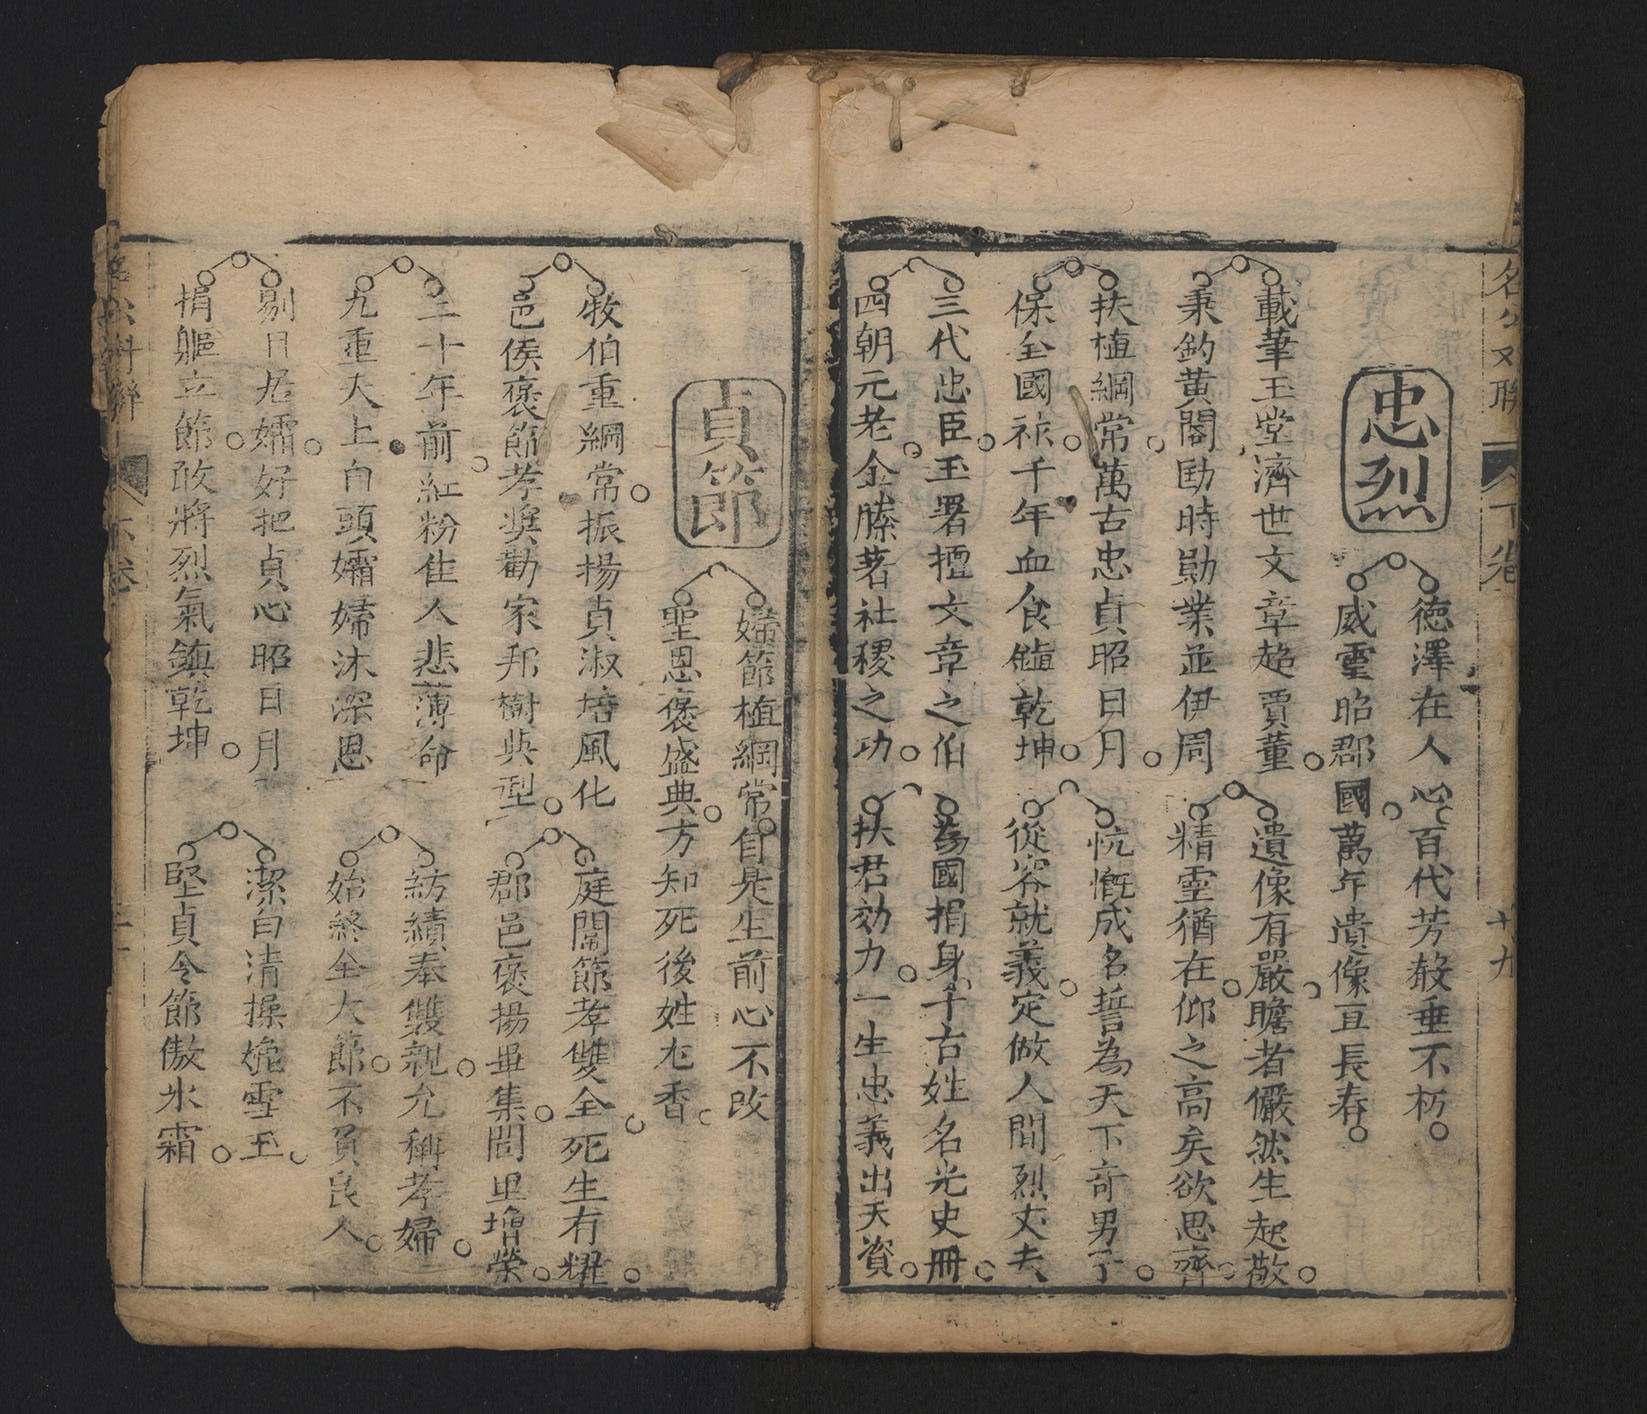 名公文聯 下卷 十九
忠烈
德澤在人心百代芳殽垂不朽
威灵昭郡國萬年遺像亘長春
載筆玉堂濟世文章超賈董
秉鈞黃閣勛時勛業並伊周
遺像有嚴瞻者儼然生起敬
精灵猶在仰之高矣欲思齊
扶植綱常萬古忠貞昭日月
保全國祚千年血食饐乾坤
忼慨成名誓為天下奇男子
從容就義定做人間烈丈夫
三代忠臣玉署擅文章之伯
四朝元老金縢著社稷之功
為國捐身千古姓名光史冊
扶君効力一生忠義出天資
貞節
婦節植綱常自是生前心不改
聖恩褒盛典方知死後姓尤香
牧伯重綱常振揚貞淑培風化
邑侯褒節孝奨勸家邦樹典型
庭闈節孝雙全死生有耀
郡邑褒揚畢集閭里增榮
二十年前紅粉隹人悲薄命
九重天上白頭孀婦沐深恩
紡績奉雙親允稱孝婦
始終全大節不負良人
剔目居孀好把貞心昭日月
捐軀立節敢將烈氣鎮乾坤
潔白清操媲雪玉
堅貞令節傲氷霜